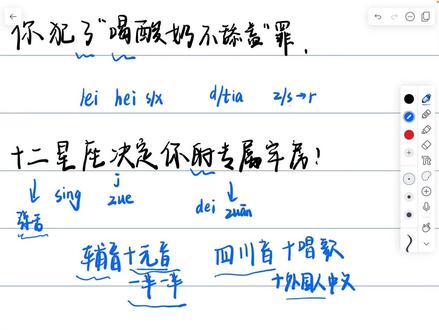 你犯了"喝酸奶不舔盖"罪,
lei hei s/x d/tia z/s→r
十二星座决定你的专属牢房!
j
sing zue dei zuān
辅音+元音 四川音+唱歌
一半一半 +外国人中文